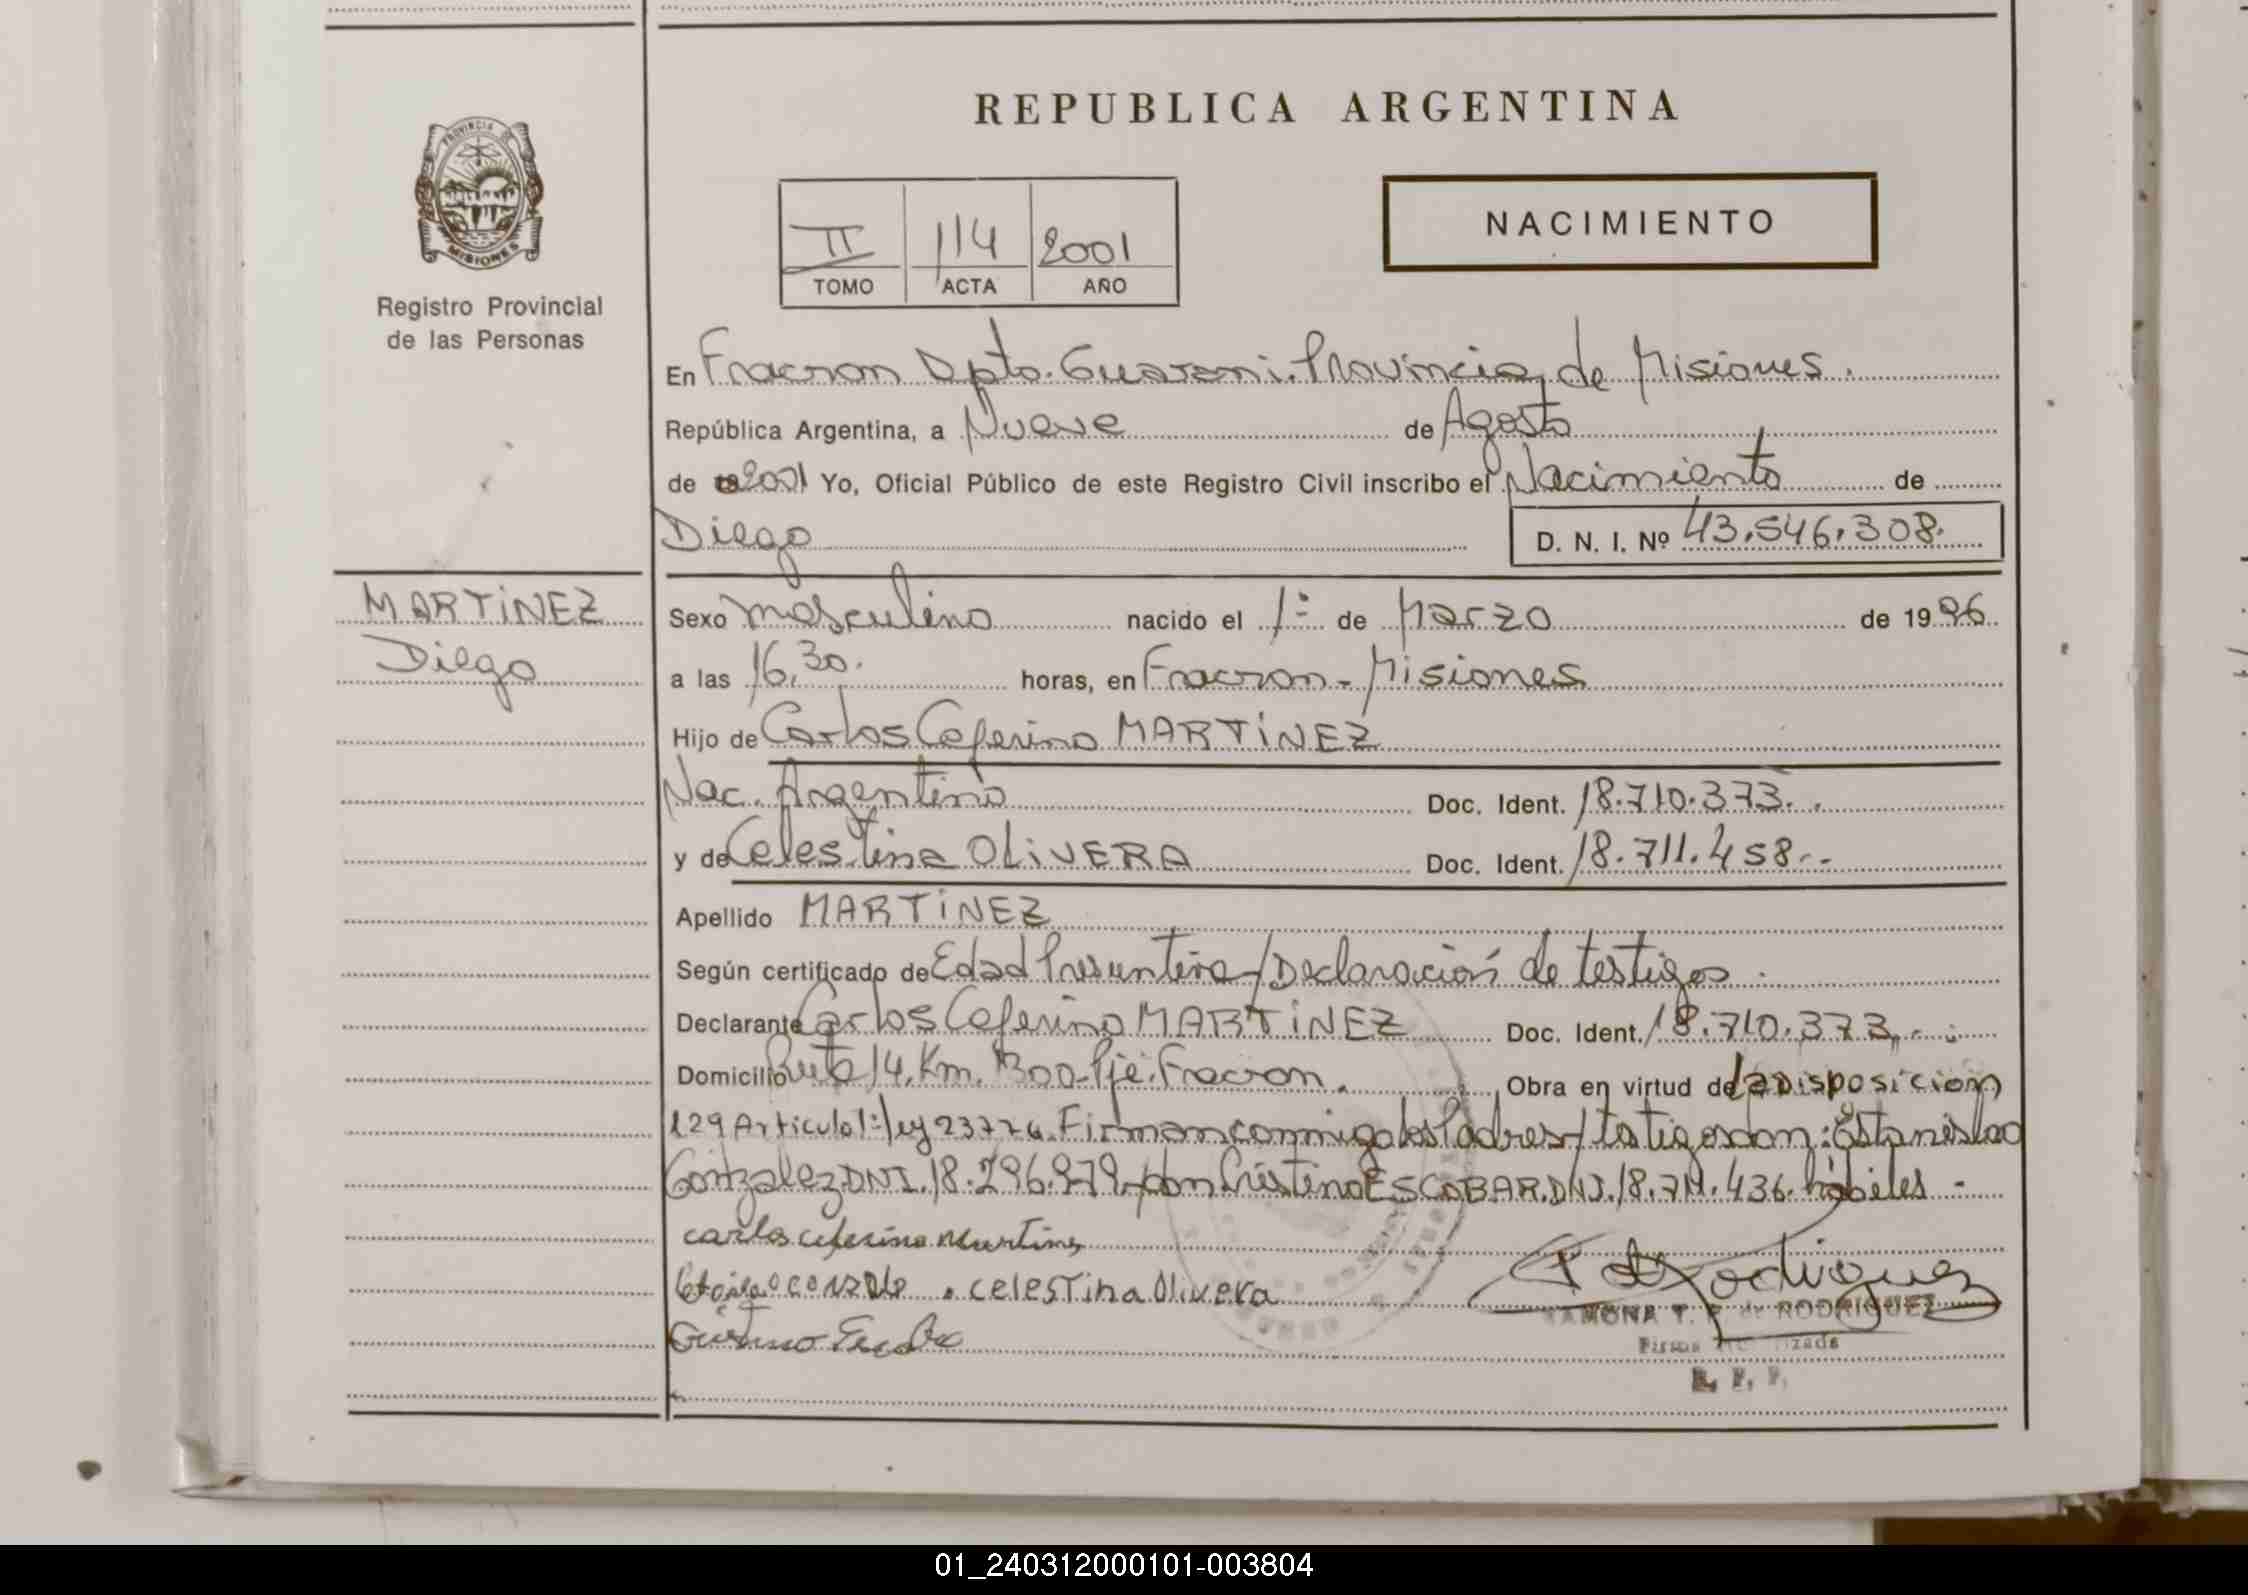 REPUBLICA ARGENTINA
PROVINCIA DE
MISIONES
Registro Provincial
de las Personas
II 114 2001
TOMO ACTA AÑO
NACIMIENTO
En Fracran Dpto. Guarani. Provincia de Misiones.
República Argentina, a Nueve de Agosto
de 2001 Yo, Oficial Público de este Registro Civil inscribo el Nacimiento de
Diego D. N. I. Nº 43.546.308.
MARTINEZ
Diego
Sexo masculino nacido el 1º de Marzo de 1996
a las 16,30. horas, en Fracran - Misiones
Hijo de Carlos Ceferino MARTINEZ
Nac. Argentino Doc. Ident. 18.710.373.
y de Celestina OLIVERA Doc. Ident. 18.711.458.-
Apellido MARTINEZ
Según certificado de Edad Presuntiva y Declaración de testigos.
Declarante Carlos Ceferino MARTINEZ Doc. Ident. 18.710.373.
Domicilio Ruta 14. Km. 1300 - Pje. Fracran. Obra en virtud de la Disposicion
129 Articulo 1º ley 23776. Firman conmigo los Padres y testigos don: Estanislao
Gonzalez DNI. 18.296.979 y don Cristino ESCOBAR. DNI. 18.711.436. hábiles -
carlos ceferino Martines
celestina Olivera
Rodriguez
RAMONA T. F. de RODRIGUEZ
Firma
R. P. P.
01_240312000101-003804